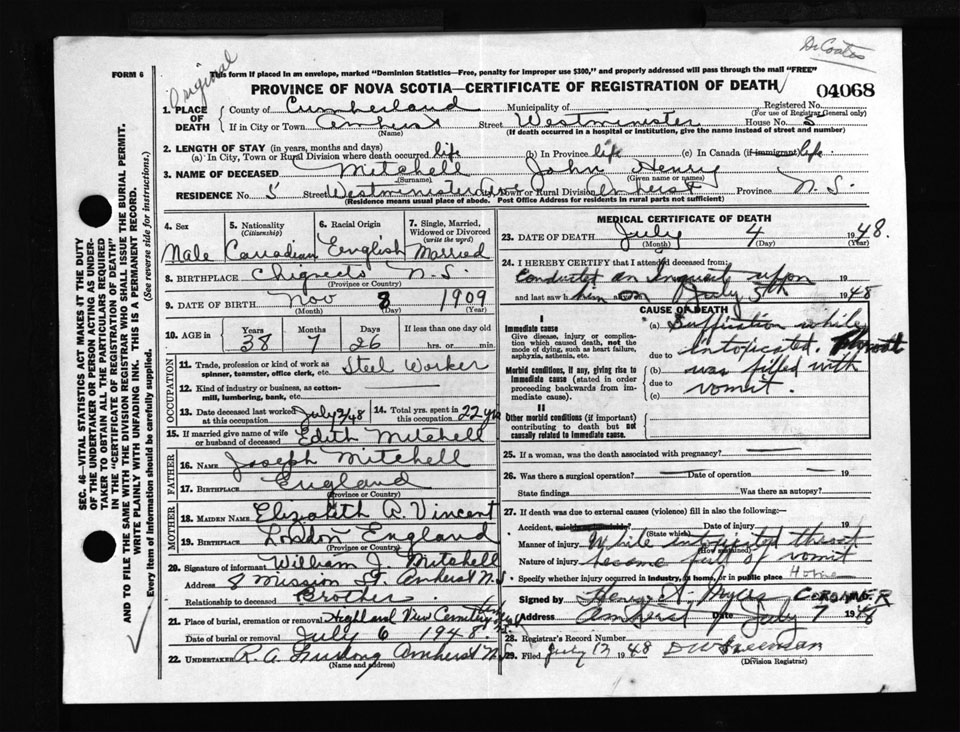 Dr Coates
Original
FORM 6
This form if placed in an envelope, marked "Dominion Statistics—Free, penalty for improper use $300," and properly addressed will pass through the mail "FREE"
PROVINCE OF NOVA SCOTIA—CERTIFICATE OF REGISTRATION OF DEATH
04068
1. PLACE OF DEATH
County of Cumberland Municipality of Registered No.
(For use of Registrar General only)
If in City or Town Amherst Street Westminister House No. 5
(Name) (If death occurred in a hospital or institution, give the name instead of street and number)
2. LENGTH OF STAY (in years, months and days)
(a) In City, Town or Rural Division where death occurred life (b) In Province life (c) In Canada (if immigrant) life
3. NAME OF DECEASED Mitchell John Henry
(Surname) (Given name or names)
RESIDENCE No. 5 Street Westminister or Rural Division Amherst Province N.S.
(Residence means usual place of abode. Post Office Address for residents in rural parts not sufficient)
4. Sex Male
5. Nationality (Citizenship) Canadian
6. Racial Origin English
7. Single, Married, Widowed or Divorced (write the word) Married
8. BIRTHPLACE N.S.
(Province or Country)
9. DATE OF BIRTH Nov 8 1909
(Month) (Day) (Year)
10. AGE in Years Months Days If less than one day old
38 7 26 hrs. or min.
OCCUPATION
11. Trade, profession or kind of work as spinner, teamster, office clerk, etc. Steel Worker
12. Kind of industry or business, as cotton-mill, lumbering, bank, etc.
13. Date deceased last worked at this occupation July 3/48
14. Total yrs. spent in this occupation 22 yrs
15. If married give name of wife or husband of deceased Edith Mitchell
FATHER
16. NAME Joseph Mitchell
17. BIRTHPLACE England
(Province or Country)
MOTHER
18. MAIDEN NAME Elizabeth A. Vincent
19. BIRTHPLACE London England
(Province or Country)
20. Signature of informant William J. Mitchell
Address 8 Mission St. Amherst N.S
Relationship to deceased Brother
21. Place of burial, cremation or removal Highland View Cemetery
Date of burial or removal July 6 1948
22. UNDERTAKER R. A. Amherst N.S
(Name and address)
MEDICAL CERTIFICATE OF DEATH
23. DATE OF DEATH July 4 1948.
(Month) (Day) (Year)
24. I HEREBY CERTIFY that I attended deceased from:
Conducted an Inquest upon 19
and last saw him on July 5th 1948
CAUSE OF DEATH
I
Immediate cause
Give disease, injury or complication which caused death, not the mode of dying, such as heart failure, asphyxia, asthenia, etc.
(a) Suffication while
due to intoxicated. Throat
Morbid conditions, if any, giving rise to immediate cause (stated in order proceeding backwards from immediate cause).
(b) was filled with
due to vomit.
(c)
II
Other morbid conditions (if important) contributing to death but not causally related to immediate cause.
25. If a woman, was the death associated with pregnancy?
26. Was there a surgical operation? Date of operation 19
State findings Was there an autopsy?
27. If death was due to external causes (violence) fill in also the following:
Accident, Date of injury 19
(State which)
Manner of injury While intoxicated throat
(How sustained)
Nature of injury became full of vomit
Specify whether injury occurred in industry, in home, or in public place Home
Signed by Henry A. Myers CORONER
Address Amherst Date July 7 1948
28. Registrar's Record Number
29. Filed July 13 1948 D W Freeman
(Division Registrar)
SEC. 46—VITAL STATISTICS ACT MAKES IT THE DUTY
OF THE UNDERTAKER OR PERSON ACTING AS UNDER-
TAKER TO OBTAIN ALL THE PARTICULARS REQUIRED
IN THE "CERTIFICATE OF REGISTRATION OF DEATH"
AND TO FILE THE SAME WITH THE DIVISION REGISTRAR WHO SHALL ISSUE THE BURIAL PERMIT.
WRITE PLAINLY WITH UNFADING INK. THIS IS A PERMANENT RECORD.
Every item of information should be carefully supplied. (See reverse side for instructions.)